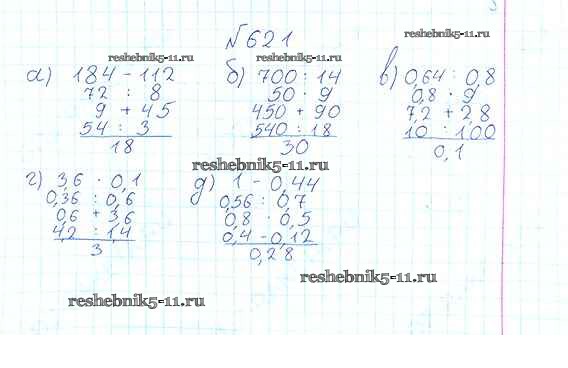 № 621
reshebnik5-11.ru reshebnik5-11.ru reshebnik5-11.ru
а) 184 - 112
72 : 8
9 + 45
54 : 3
18
б) 700 : 14
50 · 9
450 + 90
540 : 18
30
в) 0,64 : 0,8
0,8 · 9
7,2 + 2,8
10 : 100
0,1
reshebnik5-11.ru
г) 3,6 · 0,1
0,36 : 0,6
0,6 + 3,6
4,2 : 1,4
3
д) 1 - 0,44
0,56 : 0,7
0,8 · 0,5
0,4 - 0,12
0,28
reshebnik5-11.ru reshebnik5-11.ru